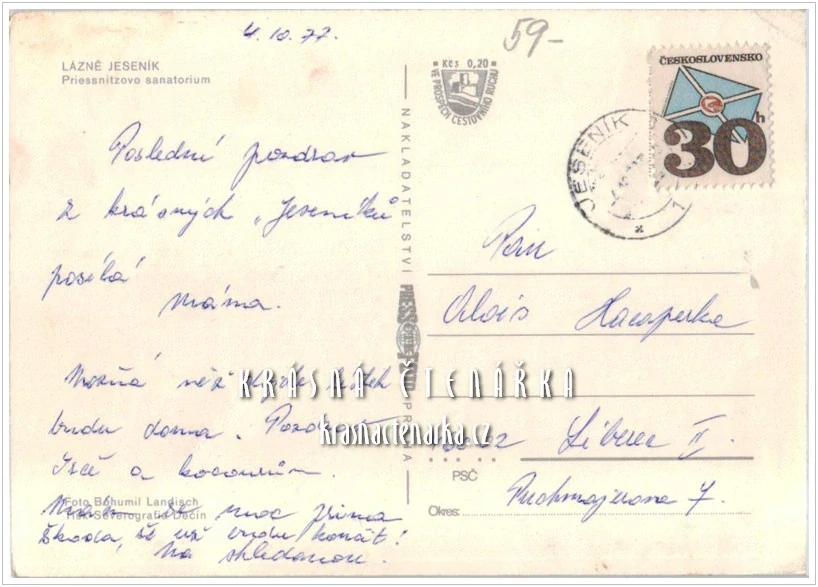 4.10.77.
59-
LÁZNĚ JESENÍK
Priessnitzovo sanatorium
Poslední pozdrav
z krásných „Jeseníků
posílá
Máma.
Možná než lístek
budu doma. Pozdrav
a kocourům.
Foto Bohumil Landisch
Tisk Severografia Děčín
Mám se moc prima
škoda, že už budu končit!
Na shledanou.
NAKLADATELSTVÍ PRESSFOTO PRAHA
Kčs 0,20
VE PROSPĚCH CESTOVNÍHO RUCHU
ČESKOSLOVENSKO
30h
JESENÍK 1
Pan
Alois
Liberec II.
PSČ
Puchmajerova 7.
Okres:
KRÁSNÁ ČTENÁŘKA
krasnactenarka.cz